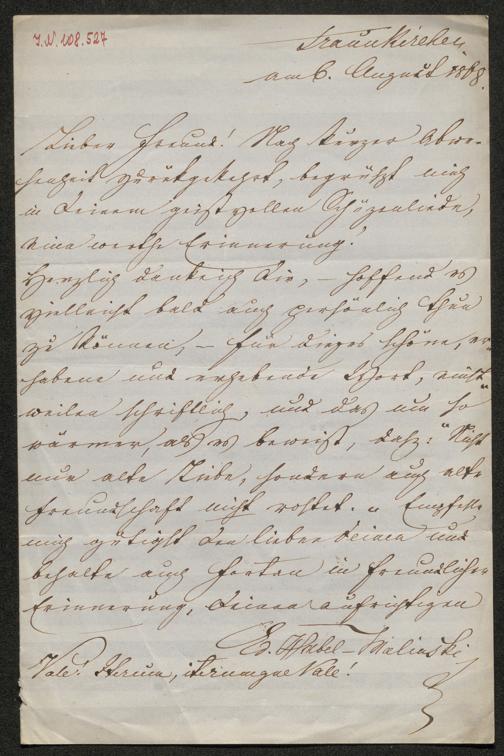 J.N. 108.527
Traunkirchen,
am 6. August 1868.
Lieber Freund! Nach kurzer Abwe-
senheit zurükgekehrt, begrüßt mich
in Deinem geistvollen Schüzenliede,
eine werthe Erinnerung!
Herzlich dank ich Dir, – hoffend es
vielleicht bald auch persönlich thun
zu können, – für dieses schöne, er-
habene und erhebende Wort, einst-
weilen schriftlich, und das um so
wärmer, als es beweist, daß: "Nicht
nur alte Liebe, sondern auch alte
Freundschaft nicht rostet." Empfehle
mich gütigst den lieben Deinen und
behalte auch fortan in freundlicher
Erinnerung, Deinen aufrichtigen
Ed.
Vale! Iterum, iterumque Vale!